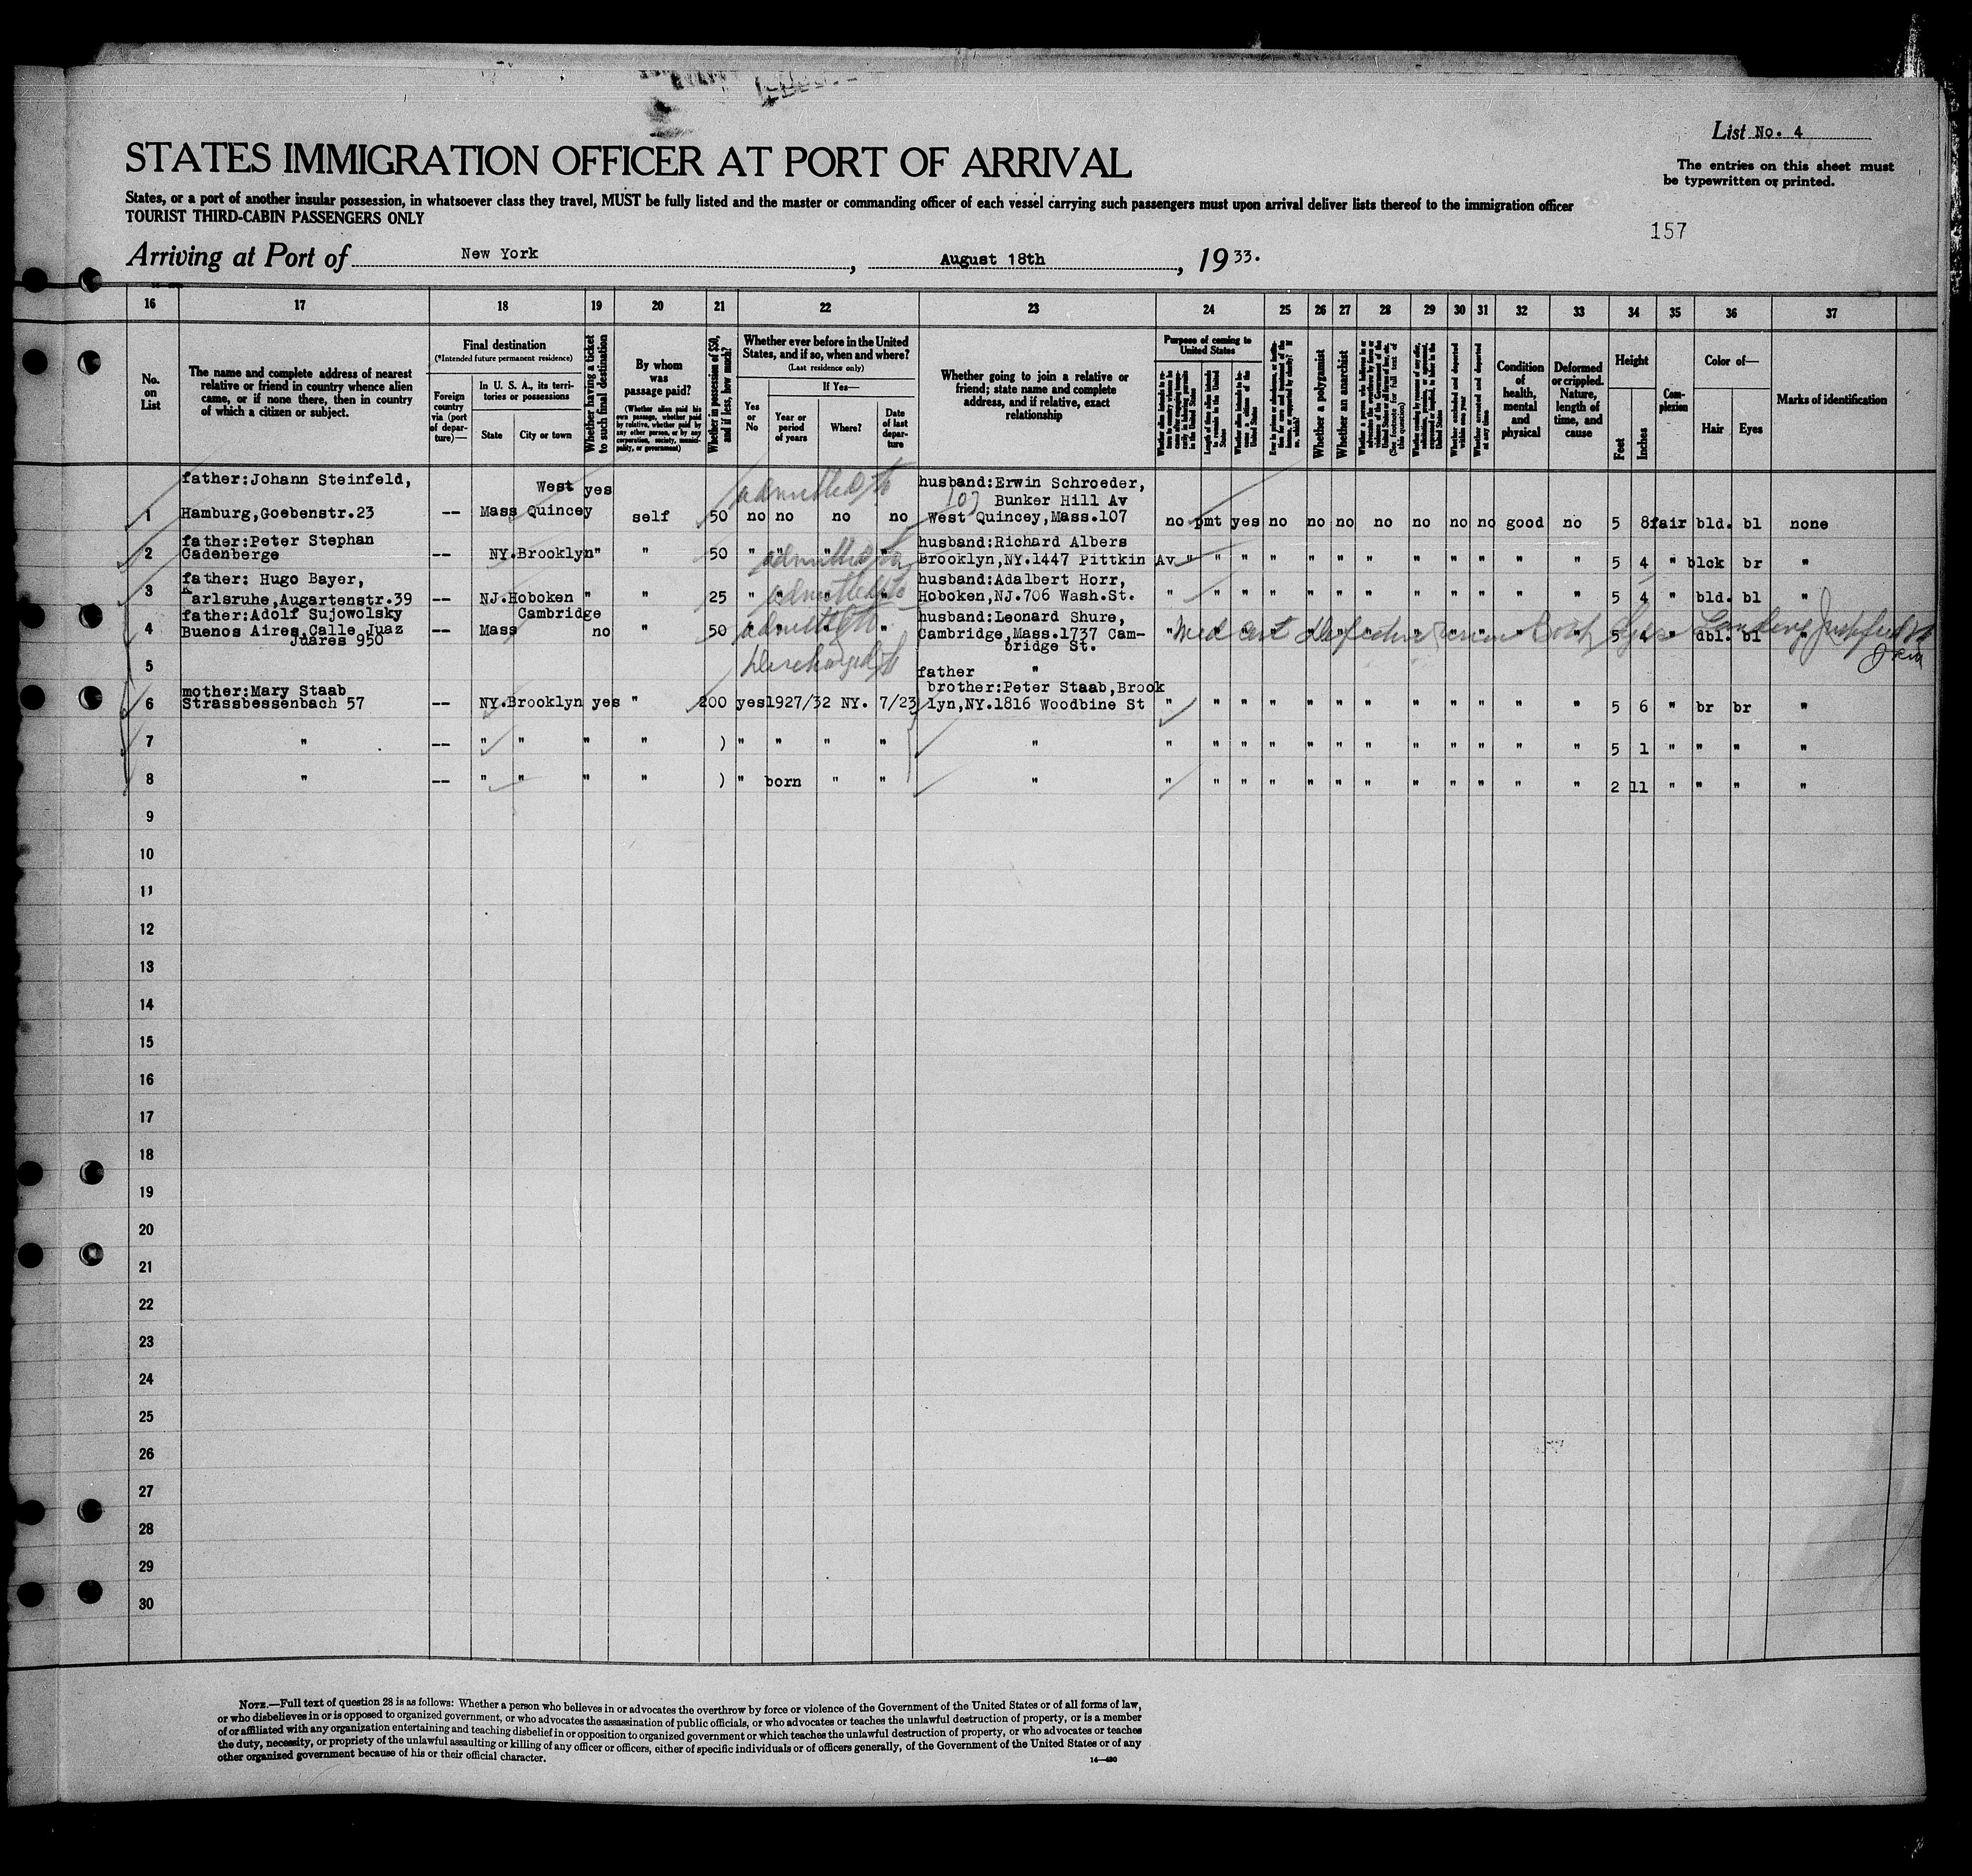 List No. 4
STATES IMMIGRATION OFFICER AT PORT OF ARRIVAL
The entries on this sheet must
be typewritten or printed.
States, or a port of another insular possession, in whatsoever class they travel, MUST be fully listed and the master or commanding officer of each vessel carrying such passengers must upon arrival deliver lists thereof to the immigration officer
TOURIST THIRD-CABIN PASSENGERS ONLY
157
Arriving at Port of New York, August 18th, 1933.
16 17 18 19 20 21 22 23 24 25 26 27 28 29 30 31 32 33 34 35 36 37
No. on List
The name and complete address of nearest
relative or friend in country whence alien
came, or if none there, then in country
of which a citizen or subject.
Final destination
(*Intended future permanent residence)
Foreign country via (port of departure)—
In U. S. A., its territories or possessions
State
City or town
Whether having a ticket to such final destination
By whom was passage paid?
(Whether alien paid his own passage, whether paid by relative, whether paid by any other person, or by any corporation, society, municipality, or government)
Whether in possession of $50, and if less, how much?
Whether ever before in the United
States, and if so, when and where?
(Last residence only)
Yes or No
If Yes—
Year or period of years
Where?
Date of last departure
Whether going to join a relative or
friend; state name and complete
address, and if relative, exact
relationship
Purpose of coming to United States
Length of time alien intends to remain in the United States
Whether alien intends to become a citizen of the United States
Whether a polygamist
Whether an anarchist
(See footnote for full text of this question)
Whether arrested and deported at any time
Condition of health, mental and physical
Deformed or crippled. Nature, length of time, and cause
Height
Feet
Inches
Complexion
Color of—
Hair
Eyes
Marks of identification
father:Johann Steinfeld, West yes admitted husband:Erwin Schroeder,
107 Bunker Hill Av
1 Hamburg,Goebenstr.23 -- Mass Quincey self 50 no no no no West Quincey,Mass.107 no pmt yes no no no no no no no good no 5 8 fair bld. bl none
father:Peter Stephan husband:Richard Albers
2 Cadenberge -- NY.Brooklyn " " 50 " " " " admitted Brooklyn,NY.1447 Pittkin Av " " " " " " " " " " " " 5 4 " blck br "
father: Hugo Bayer, husband:Adalbert Horr,
3 Karlsruhe,Augartenstr.39 -- NJ.Hoboken " " 25 " " " " admitted Hoboken,NJ.706 Wash.St. " " " " " " " " " " " " 5 4 " bld. bl "
father:Adolf Sujowolsky Cambridge husband:Leonard Shure,
4 Buenos Aires,Calle Juaz -- Mass no " 50 admitted " " " Cambridge,Mass.1737 Cam- " Med cert defective vision Both Eyes 5 4 " dbl. bl " Landing
Juares 950 bridge St.
5 Discharged father "
mother:Mary Staab brother:Peter Staab,Brook
6 Strassbessenbach 57 -- NY.Brooklyn yes " 200 yes 1927/32 NY. 7/23 lyn,NY.1816 Woodbine St " " " " " " " " " " " " 5 6 " br br "
7 " -- " " " " ) " " " " " " " " " " " " " " " " " 5 1 " " " "
8 " -- " " " " ) " born " " " " " " " " " " " " " " " 2 11 " " " "
9
10
11
12
13
14
15
16
17
18
19
20
21
22
23
24
25
26
27
28
29
30
NOTE.—Full text of question 28 is as follows: Whether a person who believes in or advocates the overthrow by force or violence of the Government of the United States or of all forms of law,
or who disbelieves in or is opposed to organized government, or who advocates the assassination of public officials, or who advocates or teaches the unlawful destruction of property, or is a member
of or affiliated with any organization entertaining and teaching disbelief in or opposition to organized government or which teaches the unlawful destruction of property, or who advocates or teaches
the duty, necessity, or propriety of the unlawful assaulting or killing of any officer or officers, either of specific individuals or of officers generally, of the Government of the United States or of any
other organized government because of his or their official character.
14—430